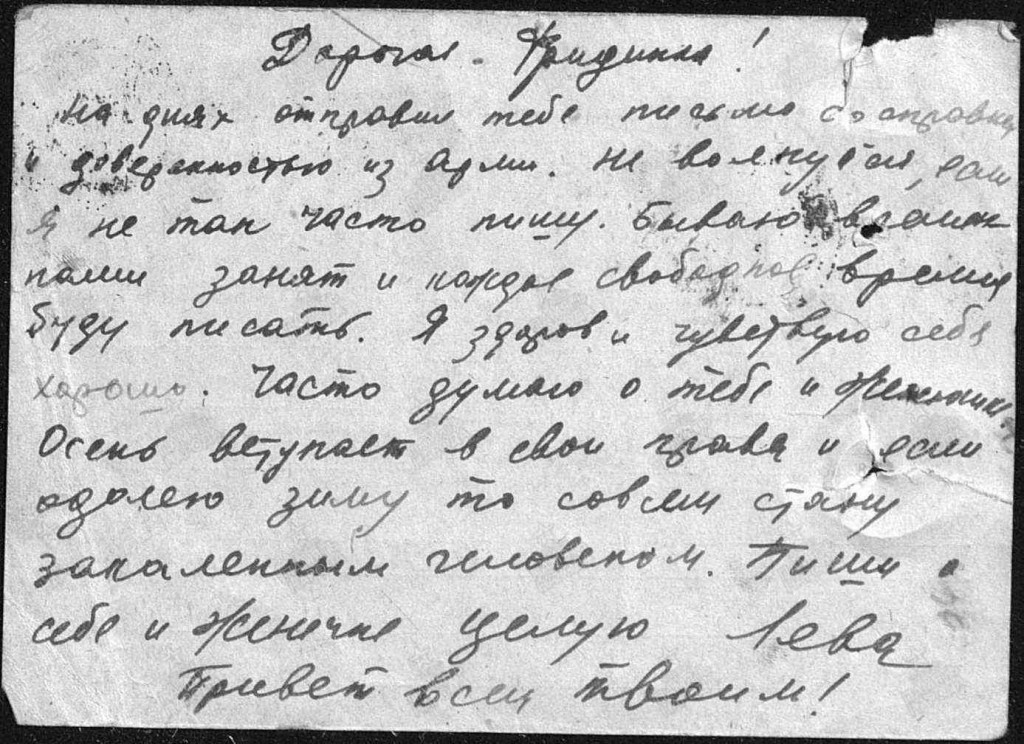 Дорогая Фридинка!
На днях отправил тебе письмо со справкой
и доверенностью из армии. Не волнуйся, если
я не так часто пишу. Бываю
занят и каждое свободное время
буду писать. Я здоров и чувствую себя
хорошо. Часто думаю о тебе и
Осень вступает в свои права и если
одолею зиму то совсем стану
закаленным человеком. Пиши о
себе и Женечке целую Лева
Привет всем твоим!